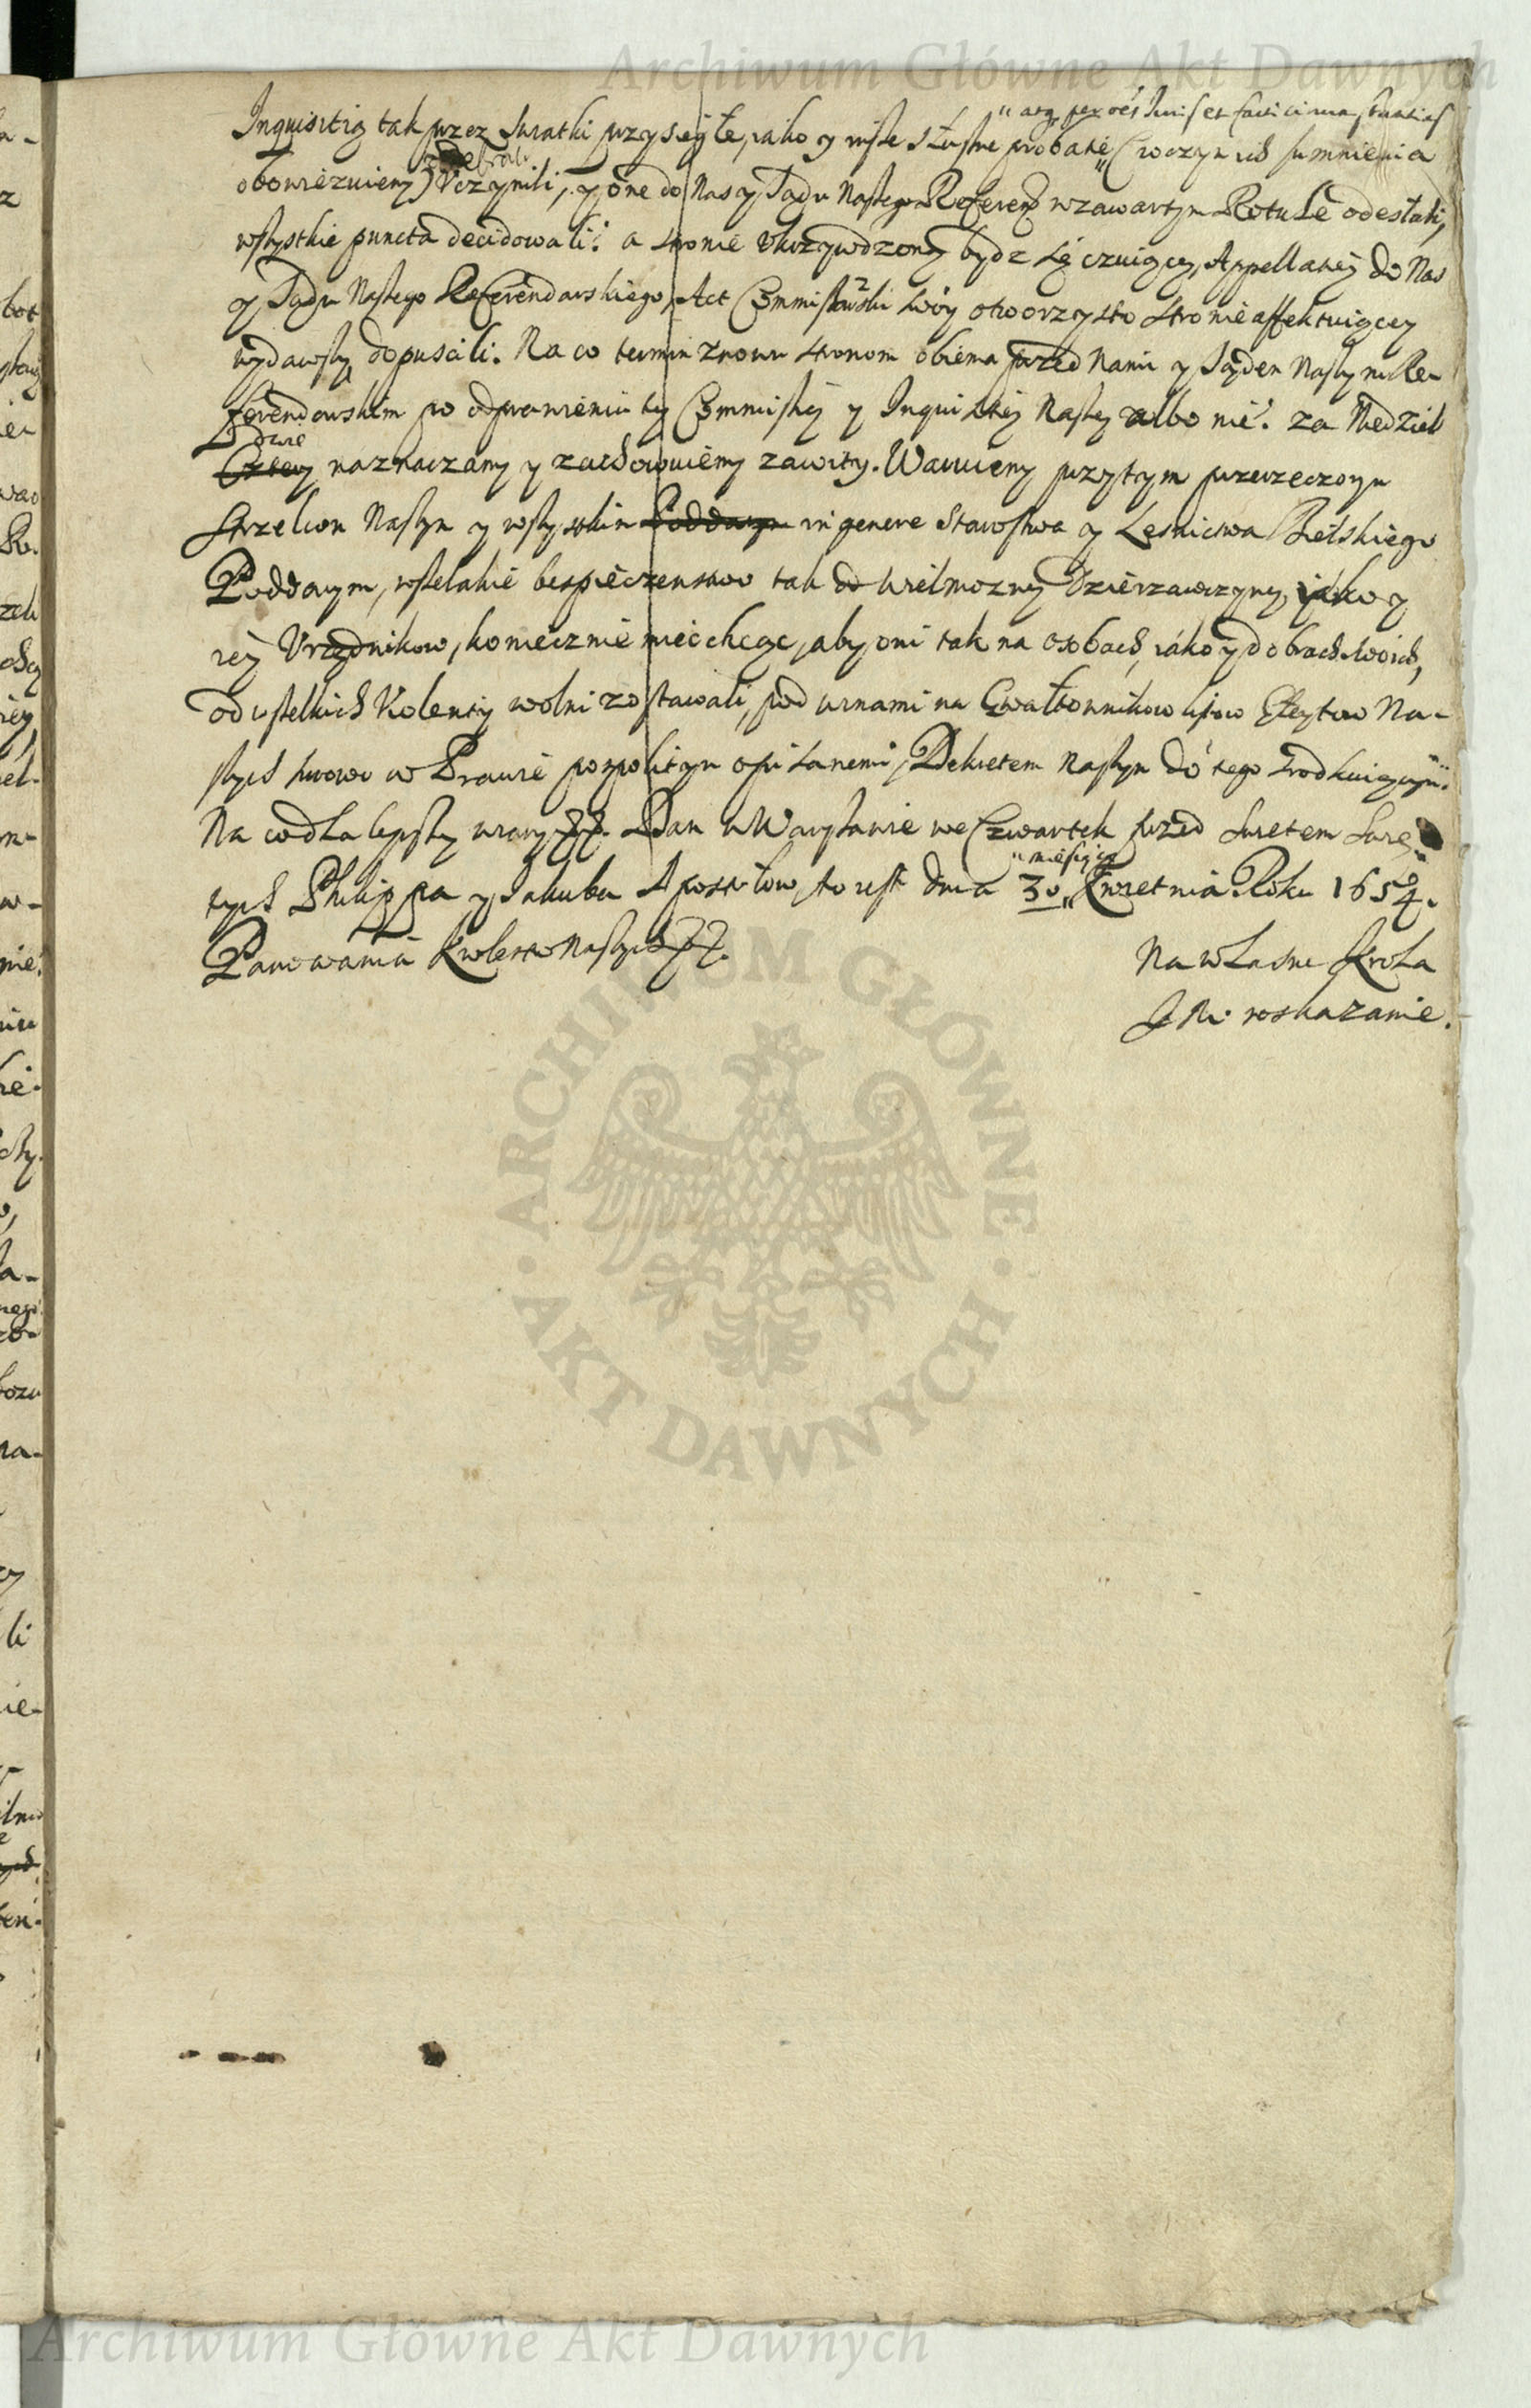 Archiwum Główne Akt Dawnych
Inquisitią tak przez Swiatki przysięgłe, iako y insze słuszne probatię (w czym ich sumnienia
obowięzuiemy) Vczynili, y one do Nas y Sądu Naszego Referen. w zawartym Rotule odesłali,
wszystkie puncta decidowali: a stronie vkrzywdzoney bydz się czuiącey, Appellatiey do Nas
y Sądu Naszego Referendarskiego, Act Commissarski swoy otworzysto stronie affektuiącey
wydawszy, dopuscili. Na co termin znowu stronom obiema przed Nami y Sądem Naszym Re-
ferendarskim po odprawieniu tey Commissiey y Inquisitiey Naszey albo nie. za Niedziel
dwie
Cztery naznaczamy y zachowuiemy zawity. Waruiemy przytym przerzeczonym
Strzelcom Naszym y wszystkim Poddanym in genere Starostwa y Lesnictwa Bielskiego
Poddanym, wszelakie bespieczenstwo tak od Wielmozney Dzierzawczyney, iako y
iey Vrzędnikow, koniecznie miec chcąc, aby oni tak na osobach, iako y dobrach swoich,
od wszelkich Violentiy wolni zostawali, pod winami na Gwałtownikow listow Gleytow Na-
szych surowo w Prawie pospolitym opisanemi, Dekretem Naszym do tego srodkuiącym.
Na co dla lepszey wiary. Dan w Warszawie we Czwartek przed Swietem Swię-
tych Philippa y Jakuba Apostołow, to iest dnia 30 Kwietnia Roku 1654.
miesiąca
Panowania Krolestw Naszych
Na własne Krola
J Mci roskazanie.
ARCHIWUM GŁÓWNE
AKT DAWNYCH
Archiwum Główne Akt Dawnych